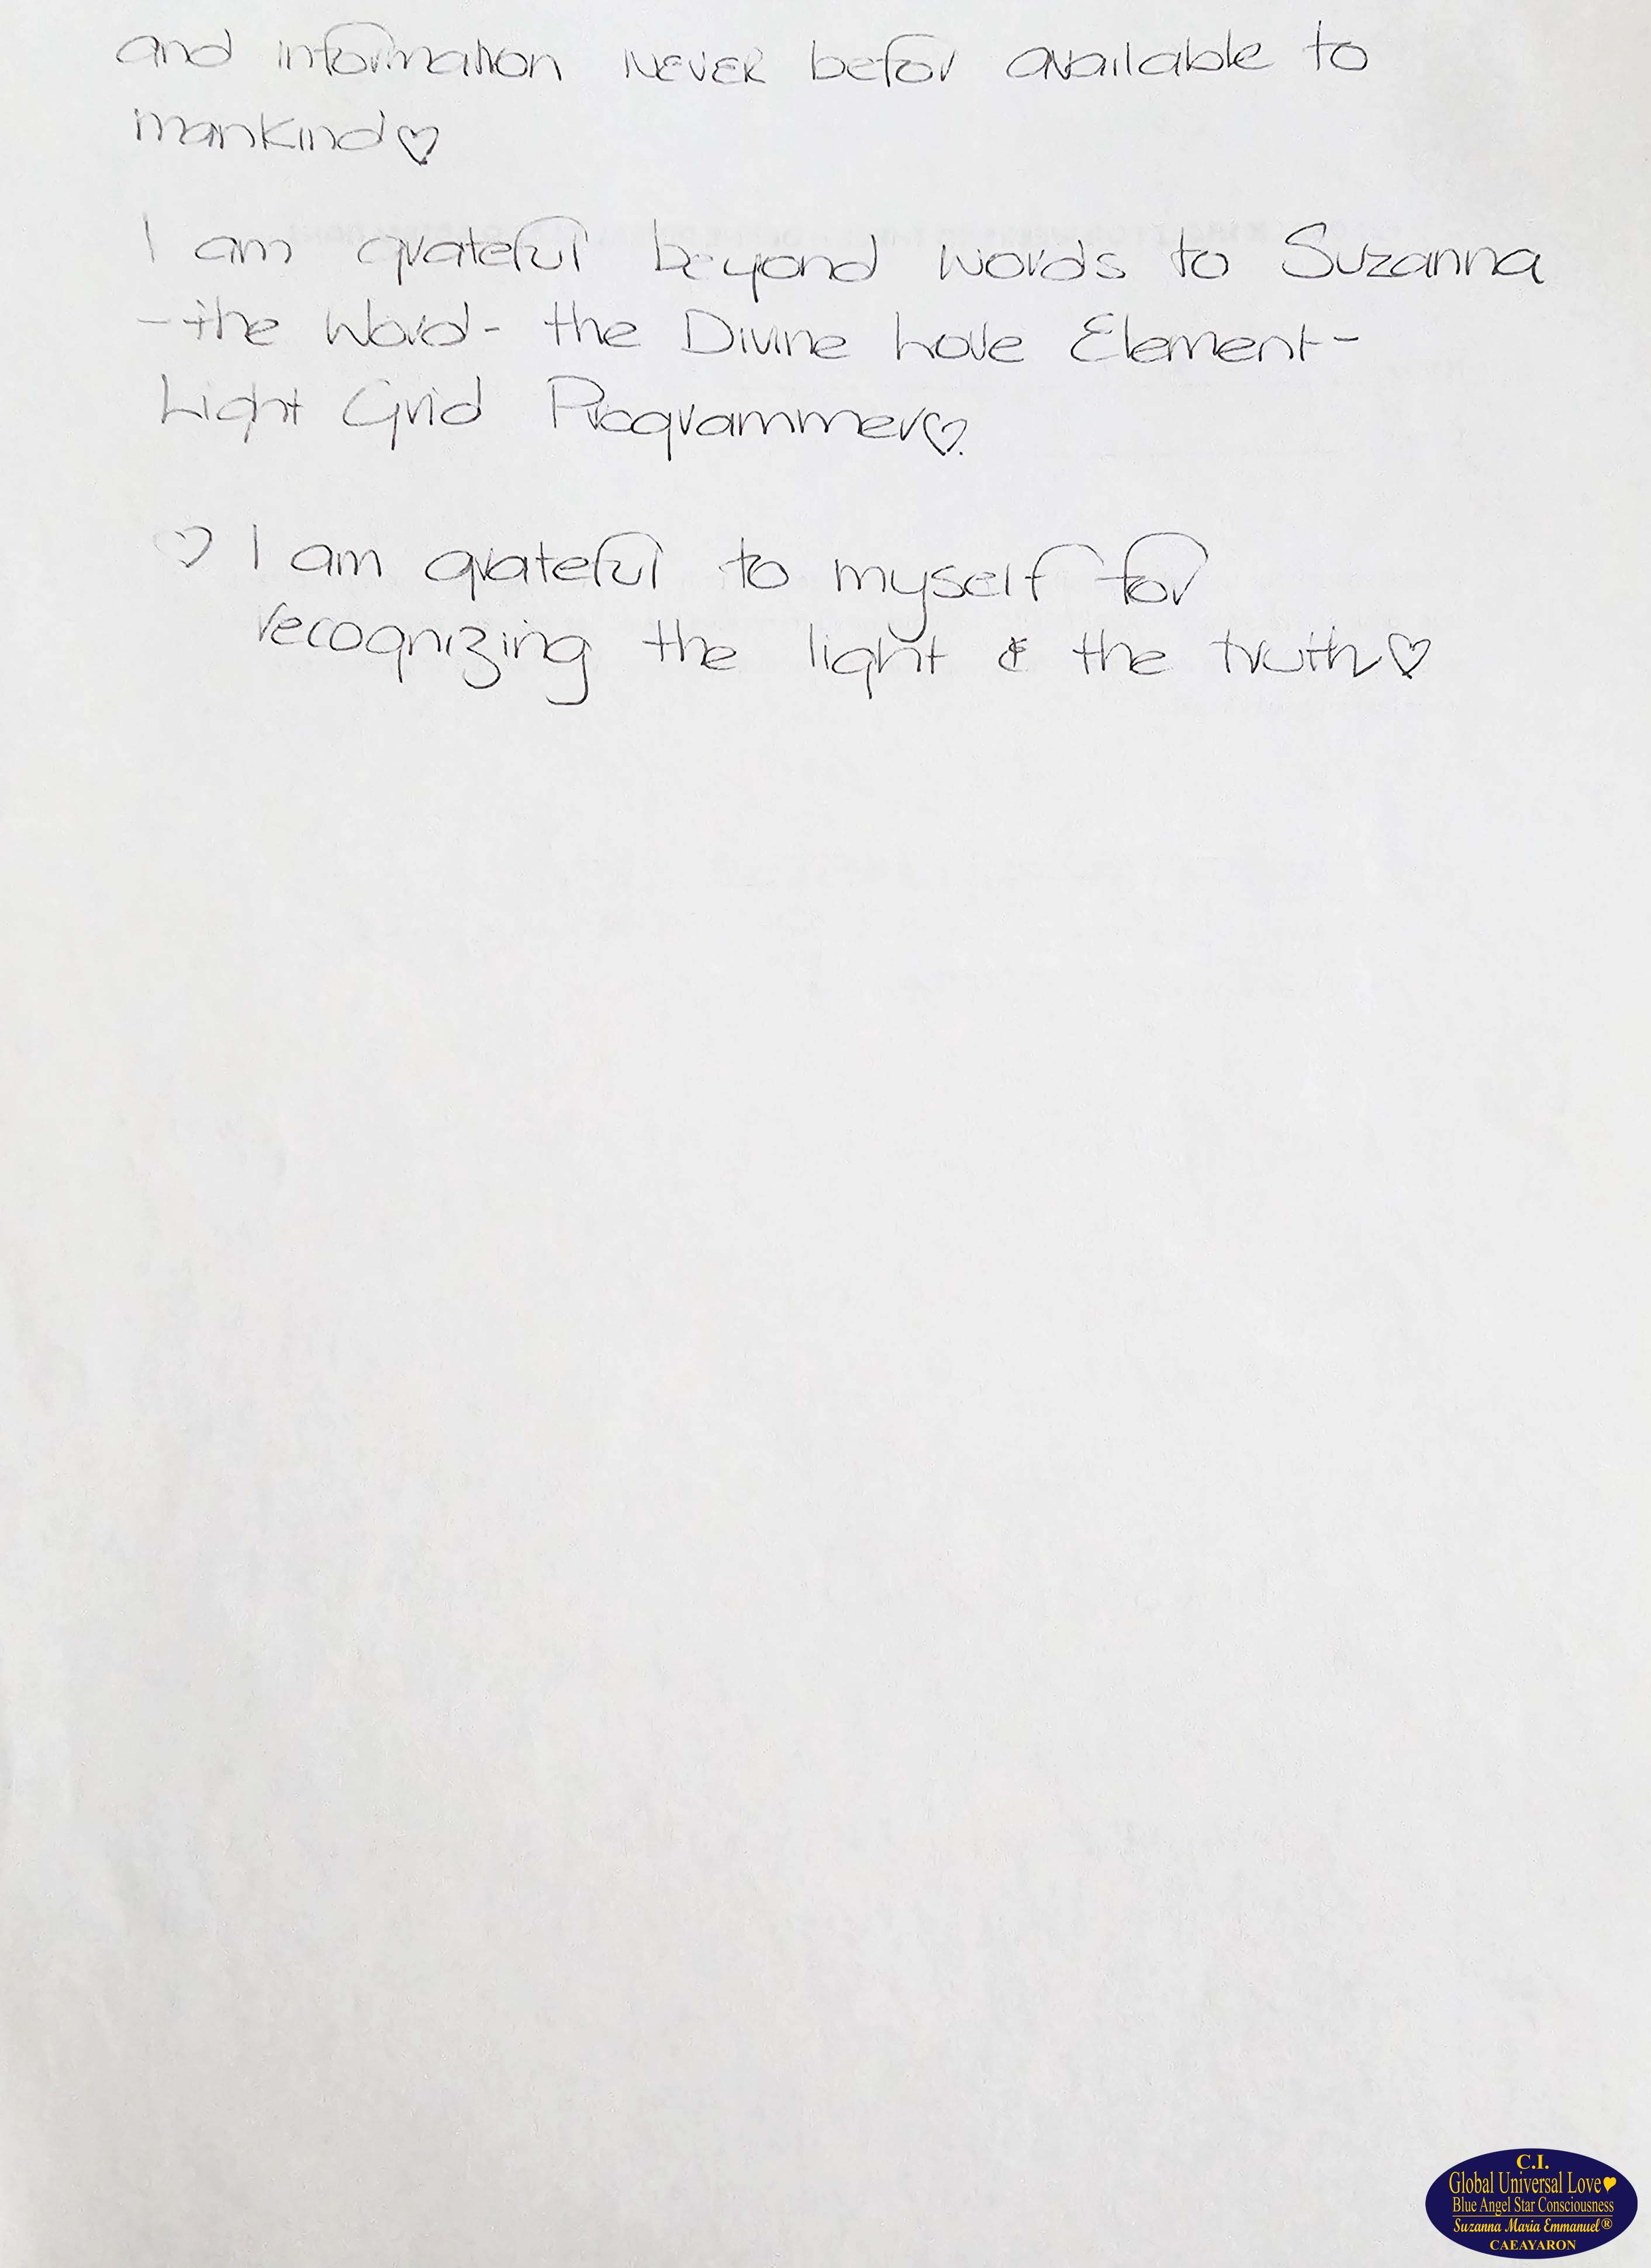 and information NEVER befor available to
mankind♡
I am grateful beyond words to Suzanna
-the Word- the Divine Love Element-
Light Grid Programmer♡.
♡ I am grateful to myself for
recognizing the light & the truth♡
C.I.
Global Universal Love♥
Blue Angel Star Consciousness
Suzanna Maria Emmanuel®
CAEAYARON